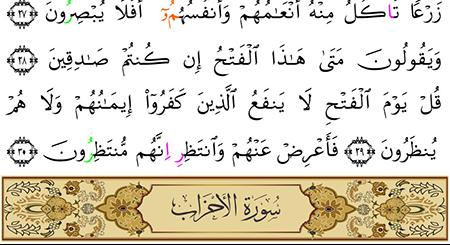 زَرْعًا تَاكُلُ مِنْهُ أَنْعَٰمُهُمْ وَأَنفُسُهُمُۥٓ أَفَلَا يُبْصِرُونَ ٢٧
وَيَقُولُونَ مَتَىٰ هَٰذَا اَلْفَتْحُ إِن كُنتُمْ صَٰدِقِينَ ٢٨
قُلْ يَوْمَ اَلْفَتْحِ لَا يَنفَعُ اُلَّذِينَ كَفَرُوٓاْ إِيمَٰنُهُمْ وَلَا هُمْ
يُنظَرُونَ ٢٩ فَأَعْرِضْ عَنْهُمْ وَانتَظِرِ اِنَّهُم مُّنتَظِرُونَ ٣٠
سُورَةُ الأَحْزَاب